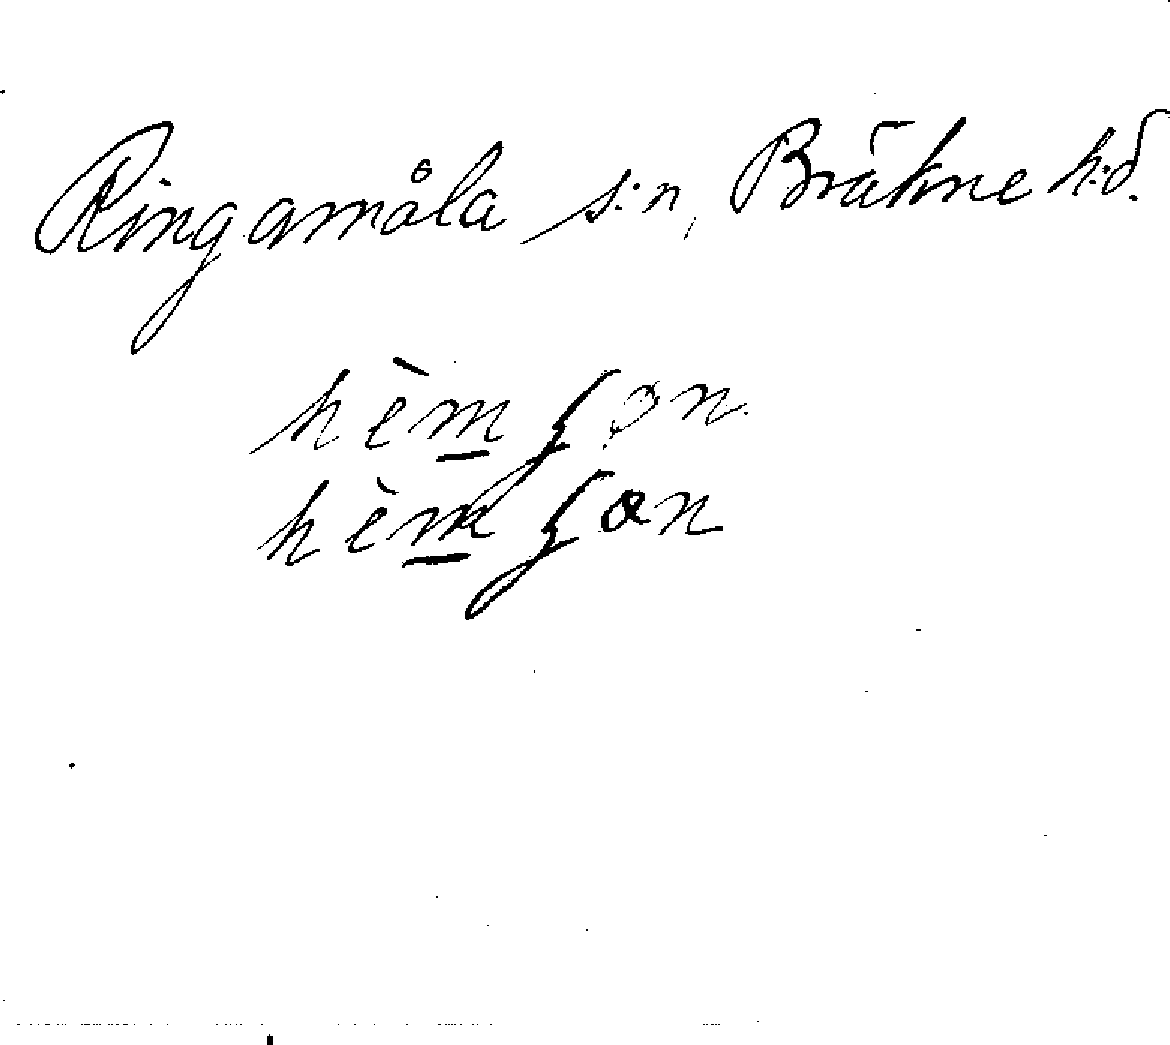 Ringamåla s:n, Bräkne h:d.
hèm̲ʃon.
hèm̲ʃan